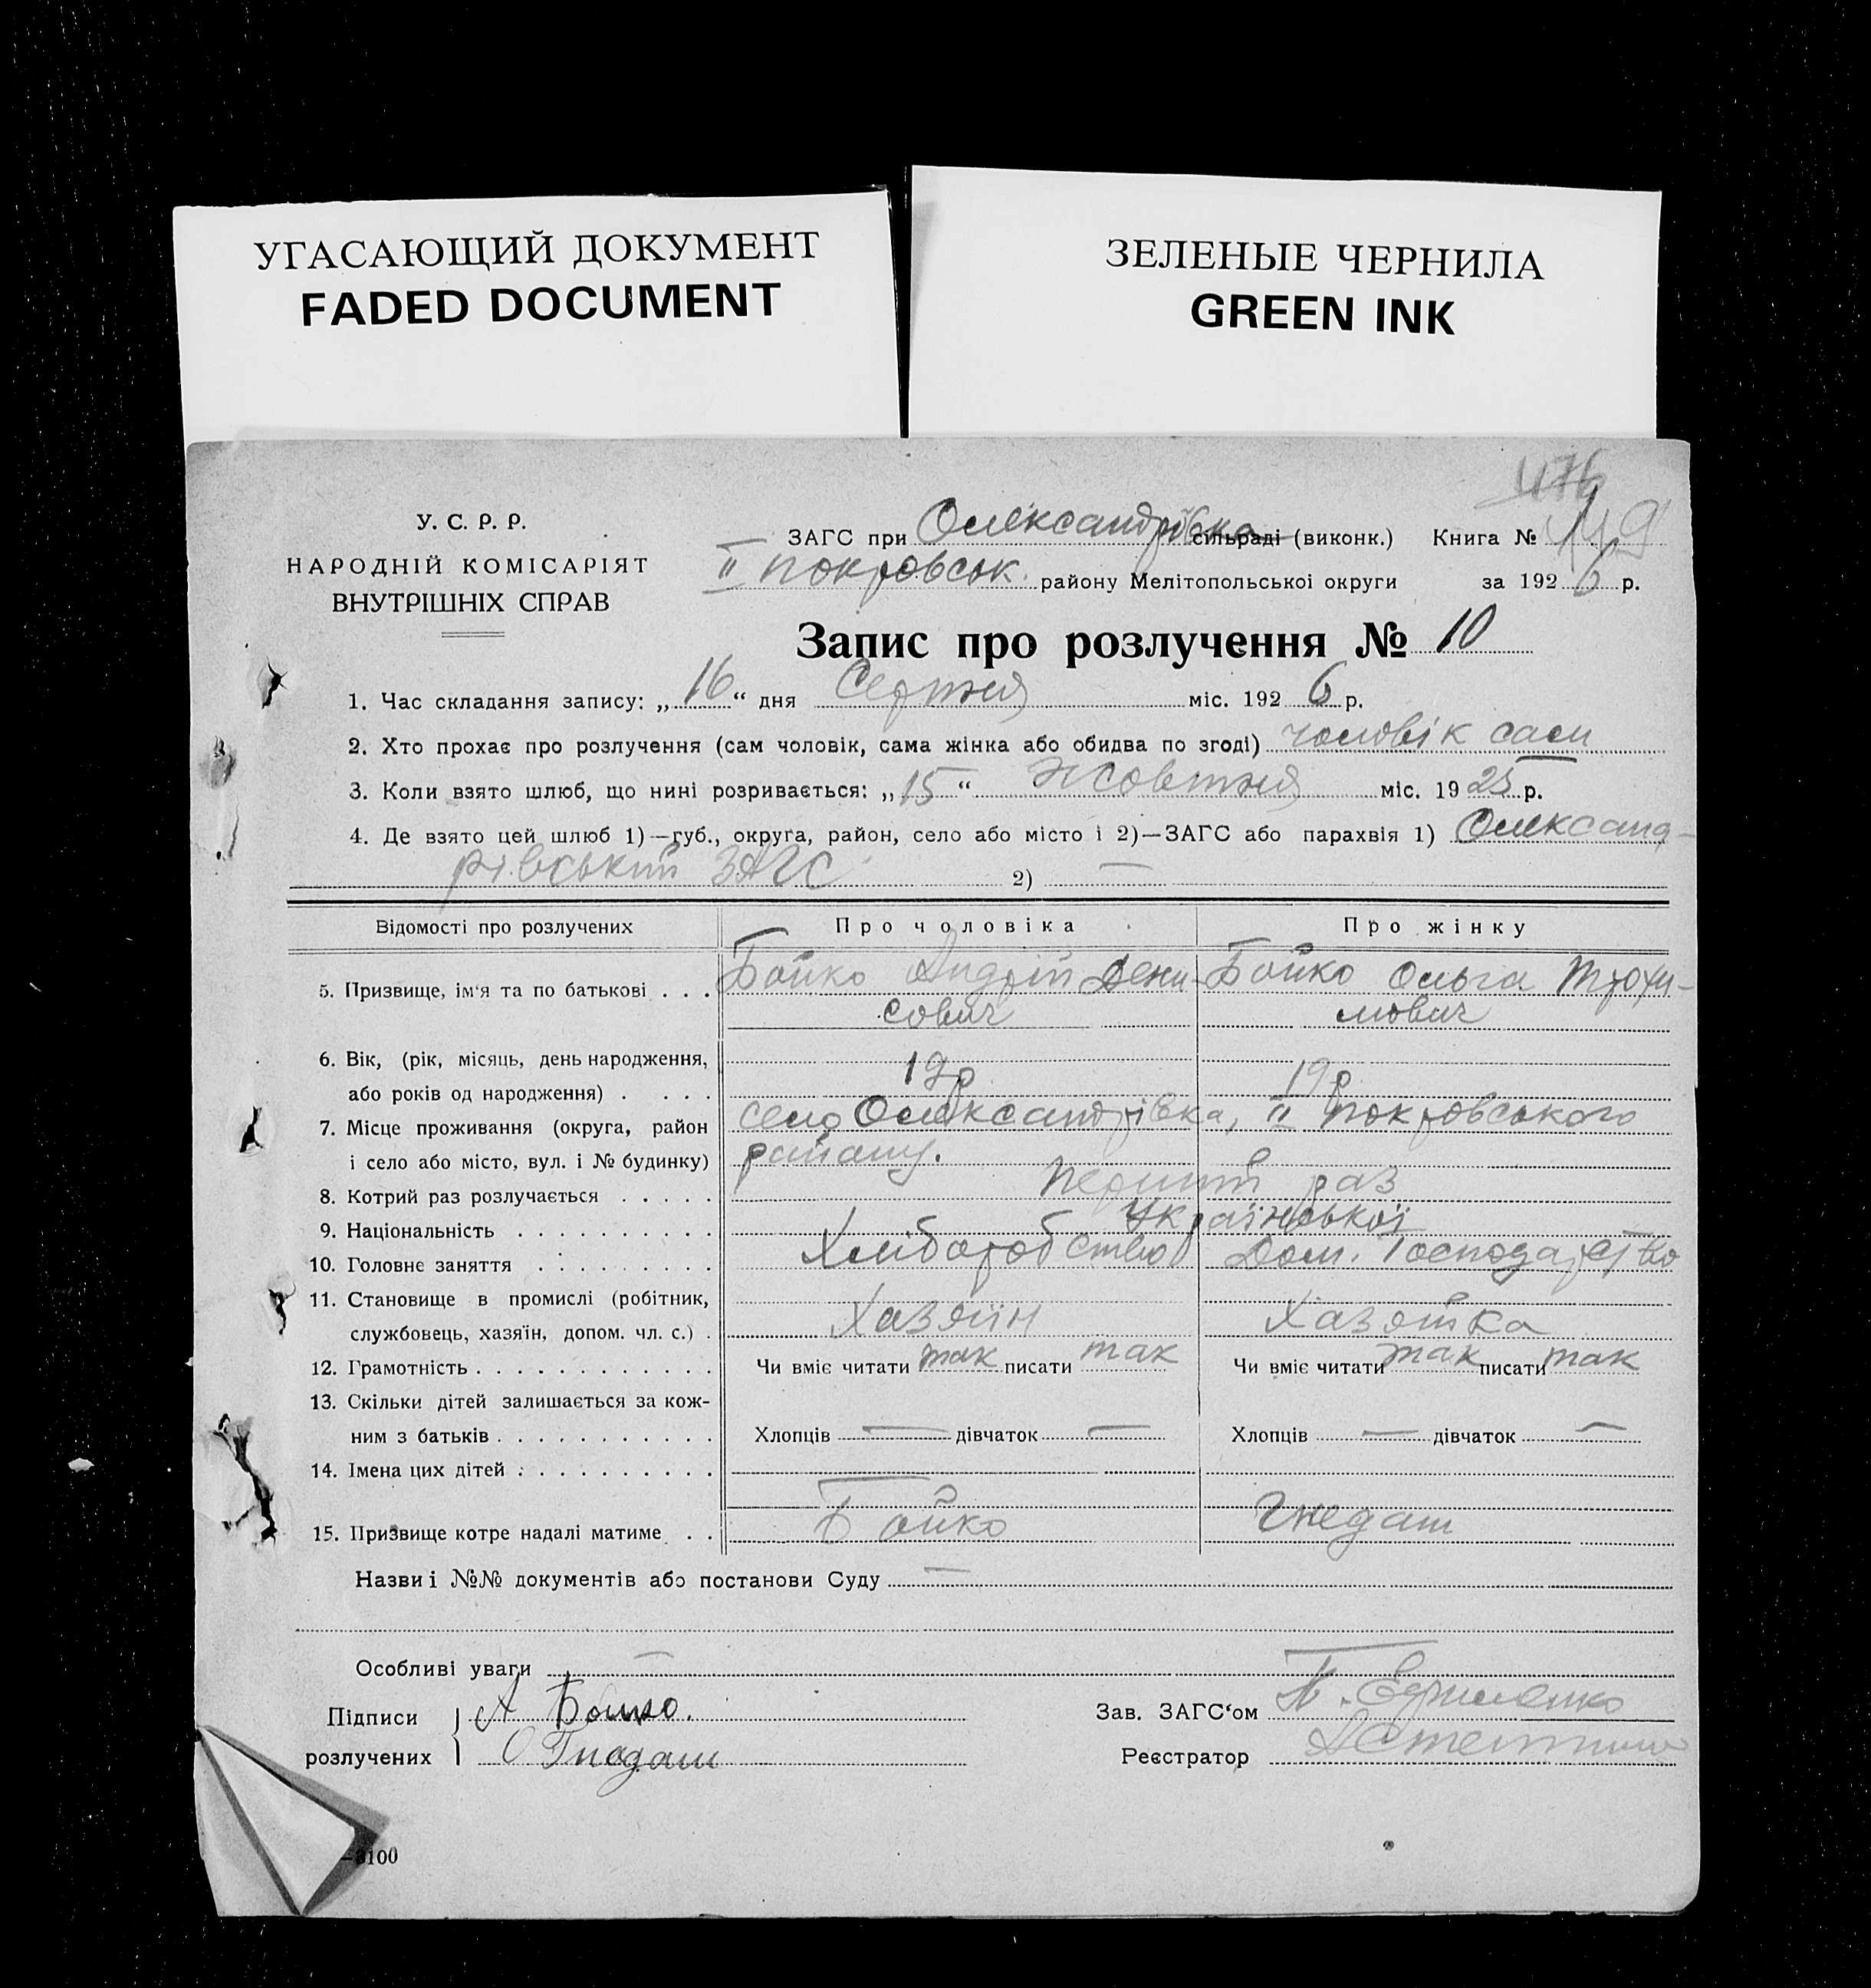 УГАСАЮЩИЙ ДОКУМЕНТ
FADED DOCUMENT
ЗЕЛЕНЫЕ ЧЕРНИЛА
GREEN INK
476
У. С. Р. Р.
НАРОДНІЙ КОМІСАРІЯТ
ВНУТРІШНІХ СПРАВ
ЗАГС при Олександрівка сільраді (виконк.) Книга №
II Покровськ. району Мелітопольської округи за 1926 р.
Запис про розлучення № 10
1. Час складання запису: „16“ дня Серпня міс. 1926 р.
2. Хто прохає про розлучення (сам чоловік, сама жінка або обидва по згоді) чоловік сам
3. Коли взято шлюб, що нині розривається: „15“ Жовтня міс. 1925 р.
4. Де взято цей шлюб 1)—губ., округа, район, село або місто і 2)—ЗАГС або парахвія 1) Олександ-
рівський ЗАГС 2) —
Відомості про розлучених Про чоловіка Про жінку
5. Призвище, ім'я та по батькові . . . Бойко Андрій Дени- Бойко Ольга Трохи-
сович мович
6. Вік, (рік, місяць, день народження,
або років од народження) . . . . 19р 19р
7. Місце проживання (округа, район село Олександрівка, II Покровського
і село або місто, вул. і № будинку) району.
8. Котрий раз розлучається . . . . . Перший раз
9. Національність . . . . . . . . . . Української
10. Головне заняття . . . . . . . . . Хліборобство Дом. Господарство
11. Становище в промислі (робітник,
службовець, хазяїн, допом. чл. с.) . Хазяїн Хазяйка
12. Грамотність . . . . . . . . . . . . Чи вміє читати так писати так Чи вміє читати так писати так
13. Скільки дітей залишається за кож-
ним з батьків . . . . . . . . . . . Хлопців — дівчаток — Хлопців — дівчаток —
14. Імена цих дітей . . . . . . . . . .
15. Призвище котре надалі матиме . . Бойко Гнедаш
Назви і №№ документів або постанови Суду —
Особливі уваги —
Підписи А Бойко.
розлучених О Гнедаш
Зав. ЗАГС‘ом П. Єфименко
Реєстратор
—3100